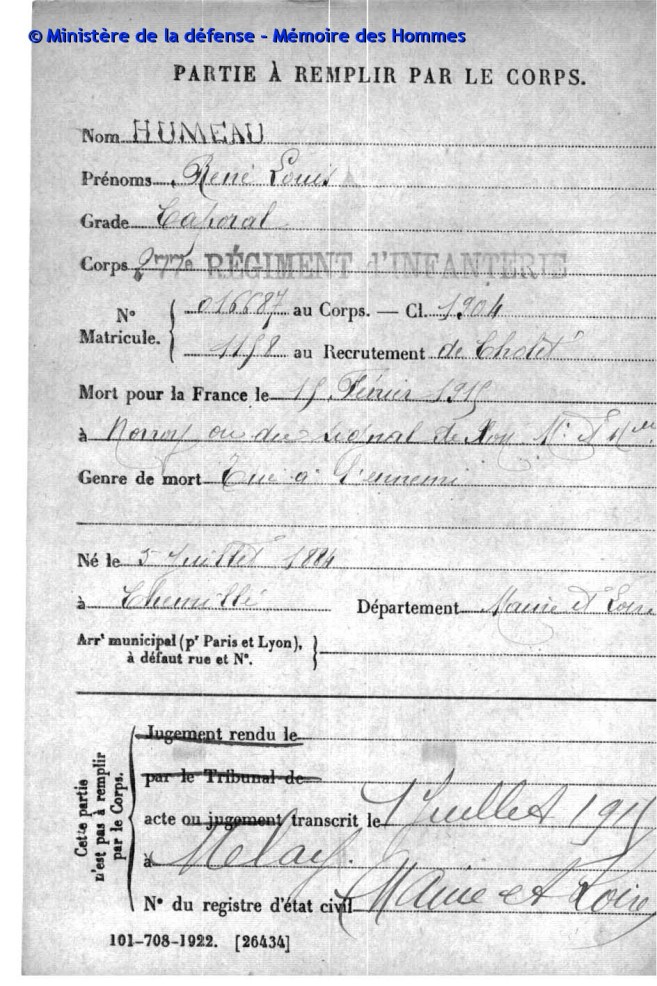 © Ministère de la défense - Mémoire des Hommes
PARTIE À REMPLIR PAR LE CORPS.
Nom HUMEAU
Prénoms René Louis
Grade Caporal
Corps 277e RÉGIMENT d'INFANTERIE
No Matricule. 016687 au Corps. — Cl. 1904
1158 au Recrutement de Cholet
Mort pour la France le 15 Février 1915
à Norroy ou du Signal de M. et Mlle
Genre de mort Tué à l'ennemi
Né le 5 Juillet 1884
à Chemillé Département Maine et Loire
Arrt municipal (pr Paris et Lyon),
à défaut rue et No.
Cette partie
n'est pas à remplir
par le Corps.
Jugement rendu le
par le Tribunal de
acte ou jugement transcrit le 1 Juillet 1915
à Melay.
No du registre d'état civil Maine et Loire
101-708-1922. [26434]